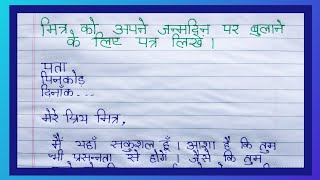 मित्र को अपने जन्मदिन पर बुलाने
के लिए पत्र लिखें।
पता
पिनकोड
दिनाँक...
मेरे प्रिय मित्र,
मैं यहाँ सकुशल हूँ। आशा है कि तुम
भी प्रसन्नता से होगे। जैसे कि तुम